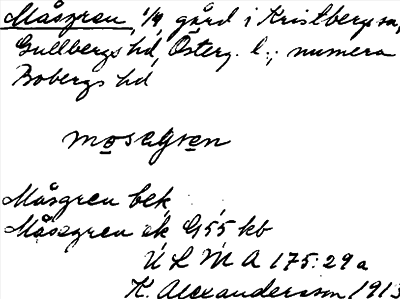 Måsgren, 1/4 gård i Kristbergs sn,
Gullbergs hd, Österg. l.; numera
Bobergs hd
mosagren
Måsgren bek
Måsegren ek G 55 kb
ULMA 175:29a
K. Alexandersson 1913